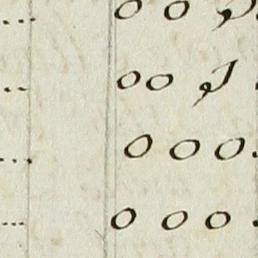 ... 0 0
... 0 0
... 0 0 0.
... 0 0 0.